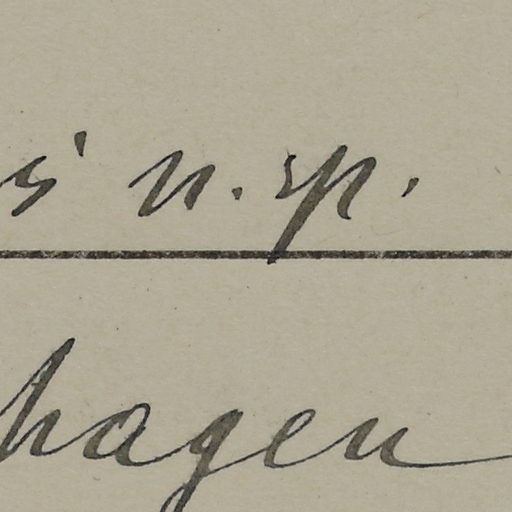 n. sp.
hagen